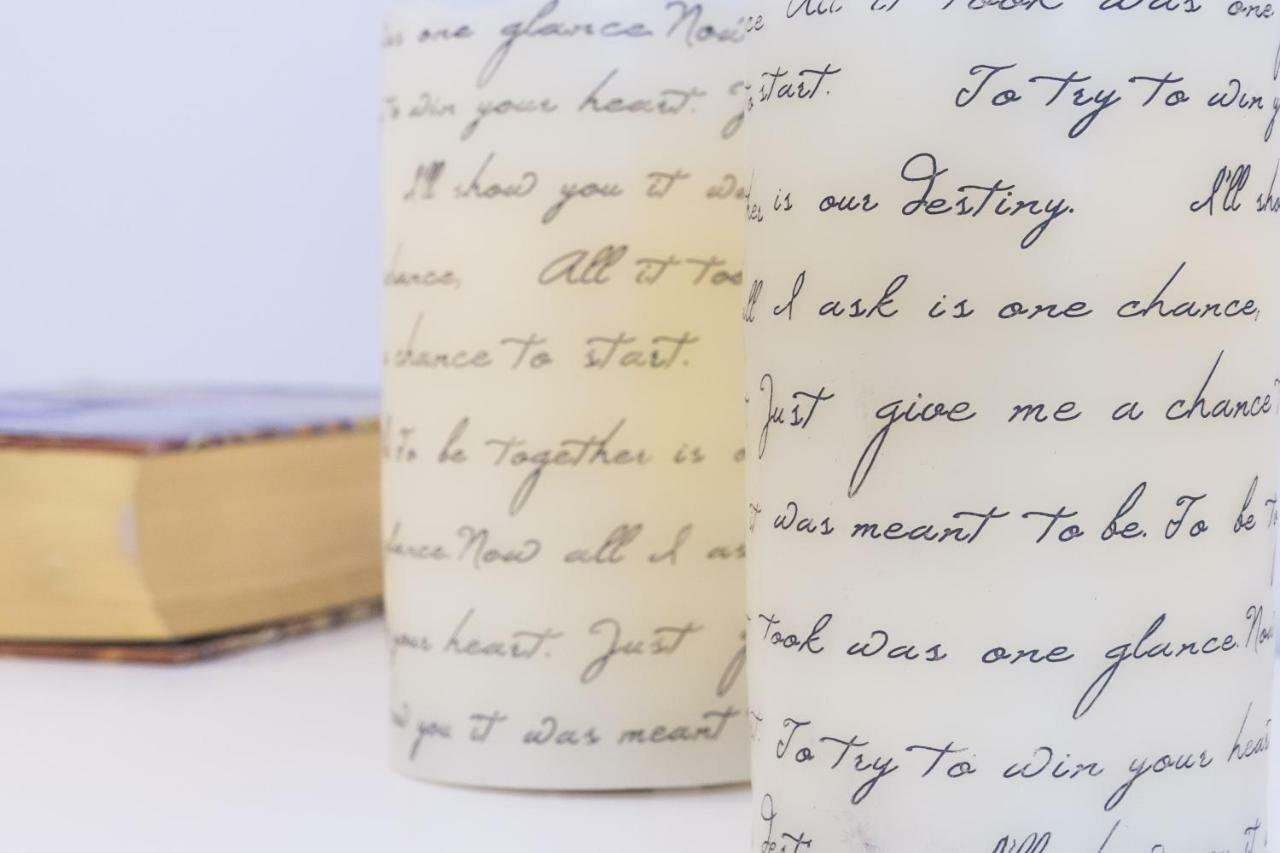 one glance. Now
To win your heart.
I'll show you it
chance, All it
chance to start.
To be together is
glance. Now all I
your heart. Just
you it was meant
All it took was one
start. To try to win
is our destiny. I'll
I ask is one chance,
Just give me a chance
was meant to be. To be
took was one glance. Now
To try to win your